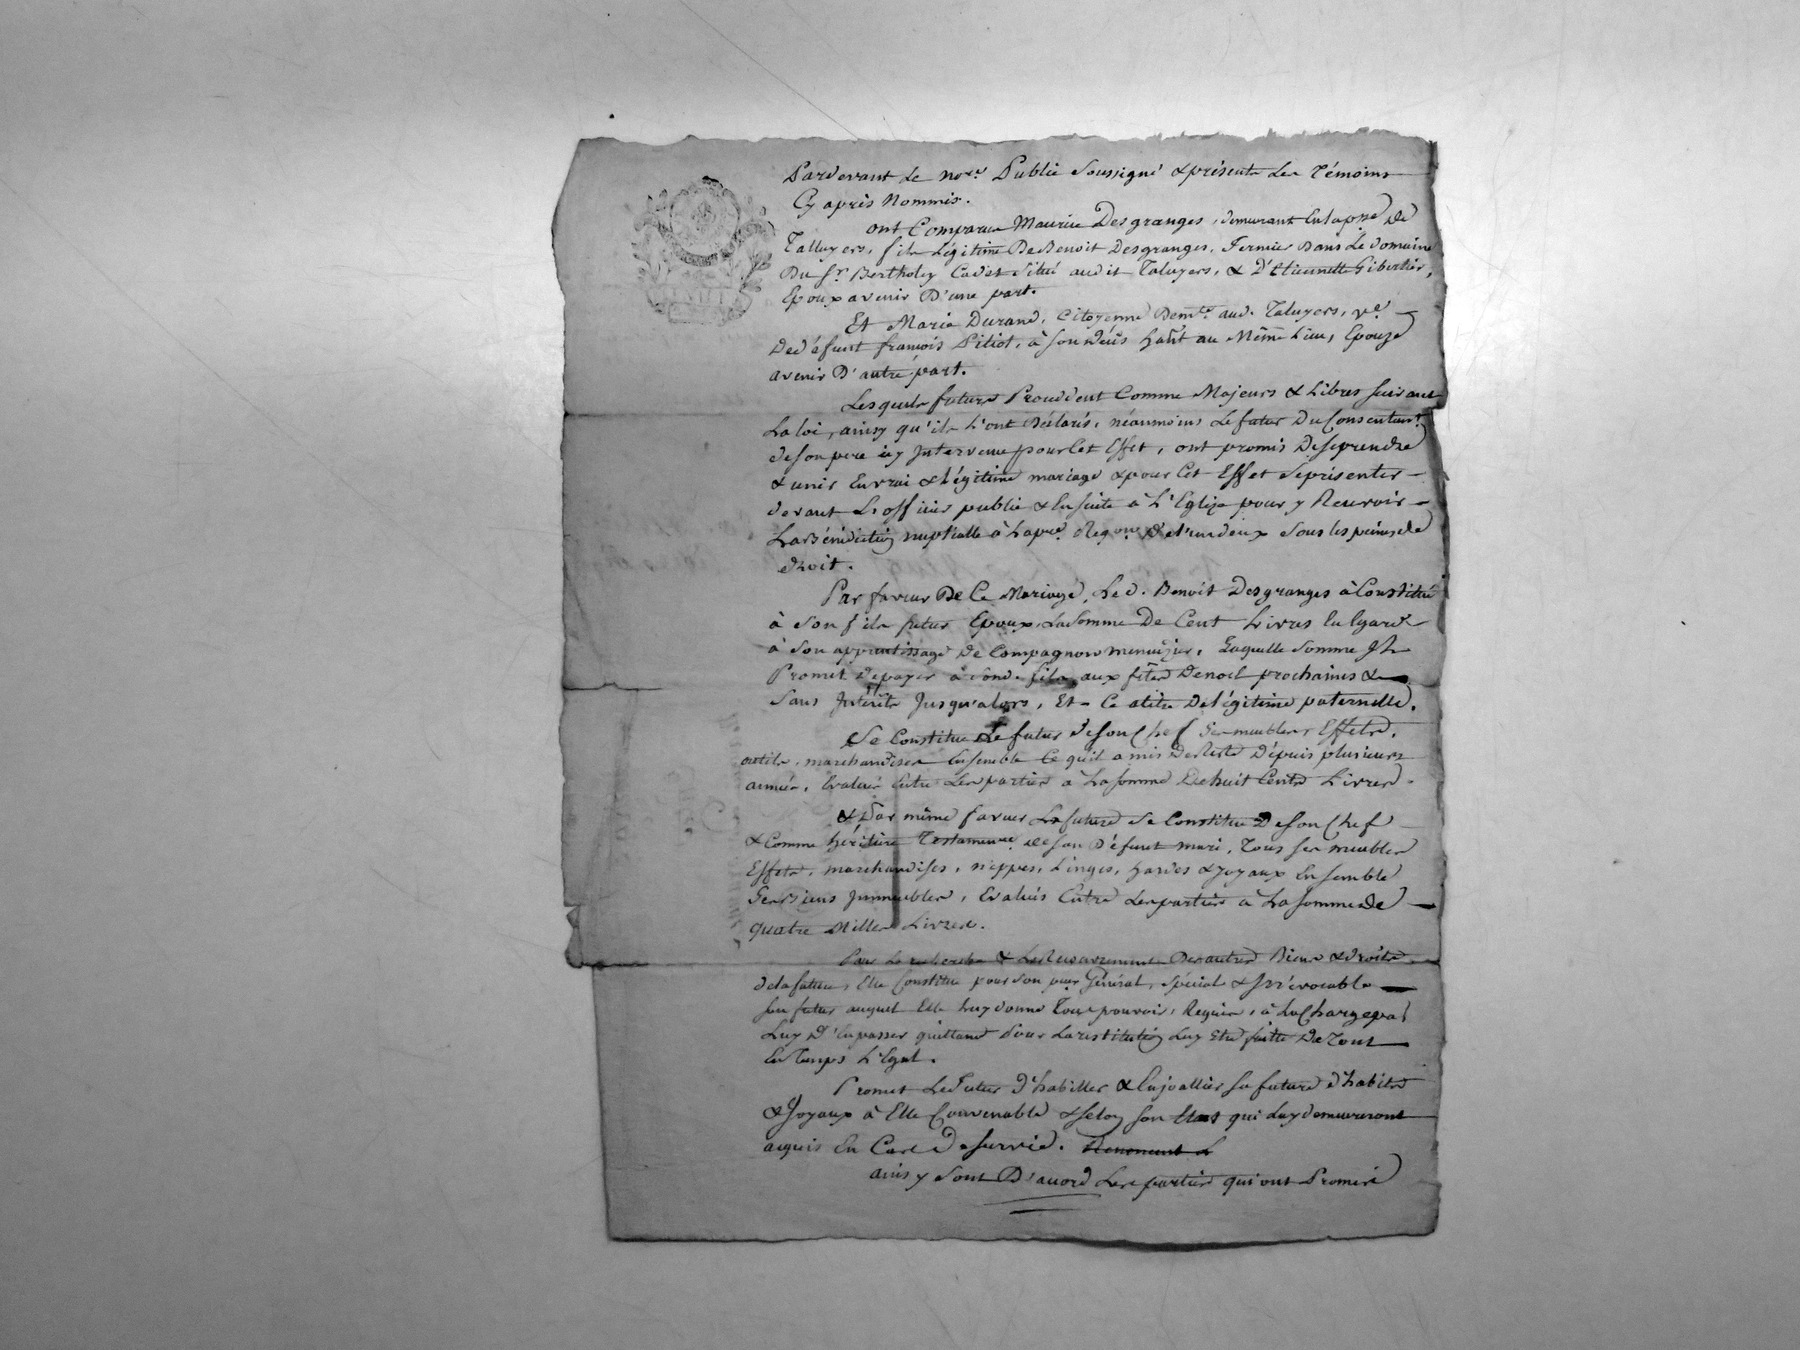 Pardevant le no.re Public soussigné & présents les témoins
Cy après Nommés.
ont Comparu Maurice Desgranges, demeurant en la psse de
Talluyers, fils légitime De Benoit Desgranges, Fermier dans Le domaine
Du Sr. Bertholey Cadet situé audit Taluyers, & D'Etiennette Gibertier,
Epoux avenir D'une part.
Et Marie Durand, Citoyenne Demte. aud. Taluyers, ve.
De défunt françois Pitiot, à son décès hañt au Même Lieu, Epouze
avenir D'autre part.
Lesquels futurs Procédent Comme Majeurs & Libres suivant
La loi, ainsy qu'ils L'ont Déclarés, néanmoins Le futur Du Consentemt.
de son pere icy Intervenu pour Cet Effet, ont promis De se prendre
& unir En vrai & Légitime mariage & pour Cet Effet se présenter
devant L'officier public & Ensuite à L'Eglize pour y Recevoir
La Bénédiction nuptialle à La pre. Requon. De l'un deux sous les peines de
droit.
Par faveur De Ce Mariage, Le d. Benoit Desgranges à Constitué
à son fils futur Epoux, La somme De Cent Livres En Egard
à son apprentissage De Compagnon menuizier, Laquelle somme Il
Promet De payer à son d. fils aux fêtes De noel prochaines &
Sans Intérêts Jusqu'alors, Et Ce à titre De légitime paternelle.
Se Constitue Le futur De son Chef Ses meubles, Effets,
outils, marchandises Ensemble Ce qu'il a mis De Reste Dépuis plusieurs
années, Evalués Entre Les parties à La somme De huit Cents Livres.
& Par même faveur La future Se Constitue De son Chef
& Comme héritière Testamenre. de son Défunt mari, Tous ses meubles
Effets, marchandises, nippes, Linges, hardes & Joyaux Ensemble
Ses Biens Immeubles, Evalués Entre Les parties à La somme de
quatre Milles Livres.
Pour La recherche & Les Recouvrements Des autres Biens & droits
de la future, Elle Constitue pour son pcur Général, spécial & Irrévocable
son futur auquel Elle Luy donne Tous pouvoirs, Requis, à La Charge par
Luy D'En passer quittance pour La restitution Luy Etre faitte De Tout
En Temps & Egal.
Promet Le Futur D'habiller & Enjoallier sa future d'habits
& Joyaux à Elle Convenable & selon son Etat qui Luy demeureront
acquis En Cas De survie. Renoncent L
ainsy sont D'accord Les parties qui ont Promis